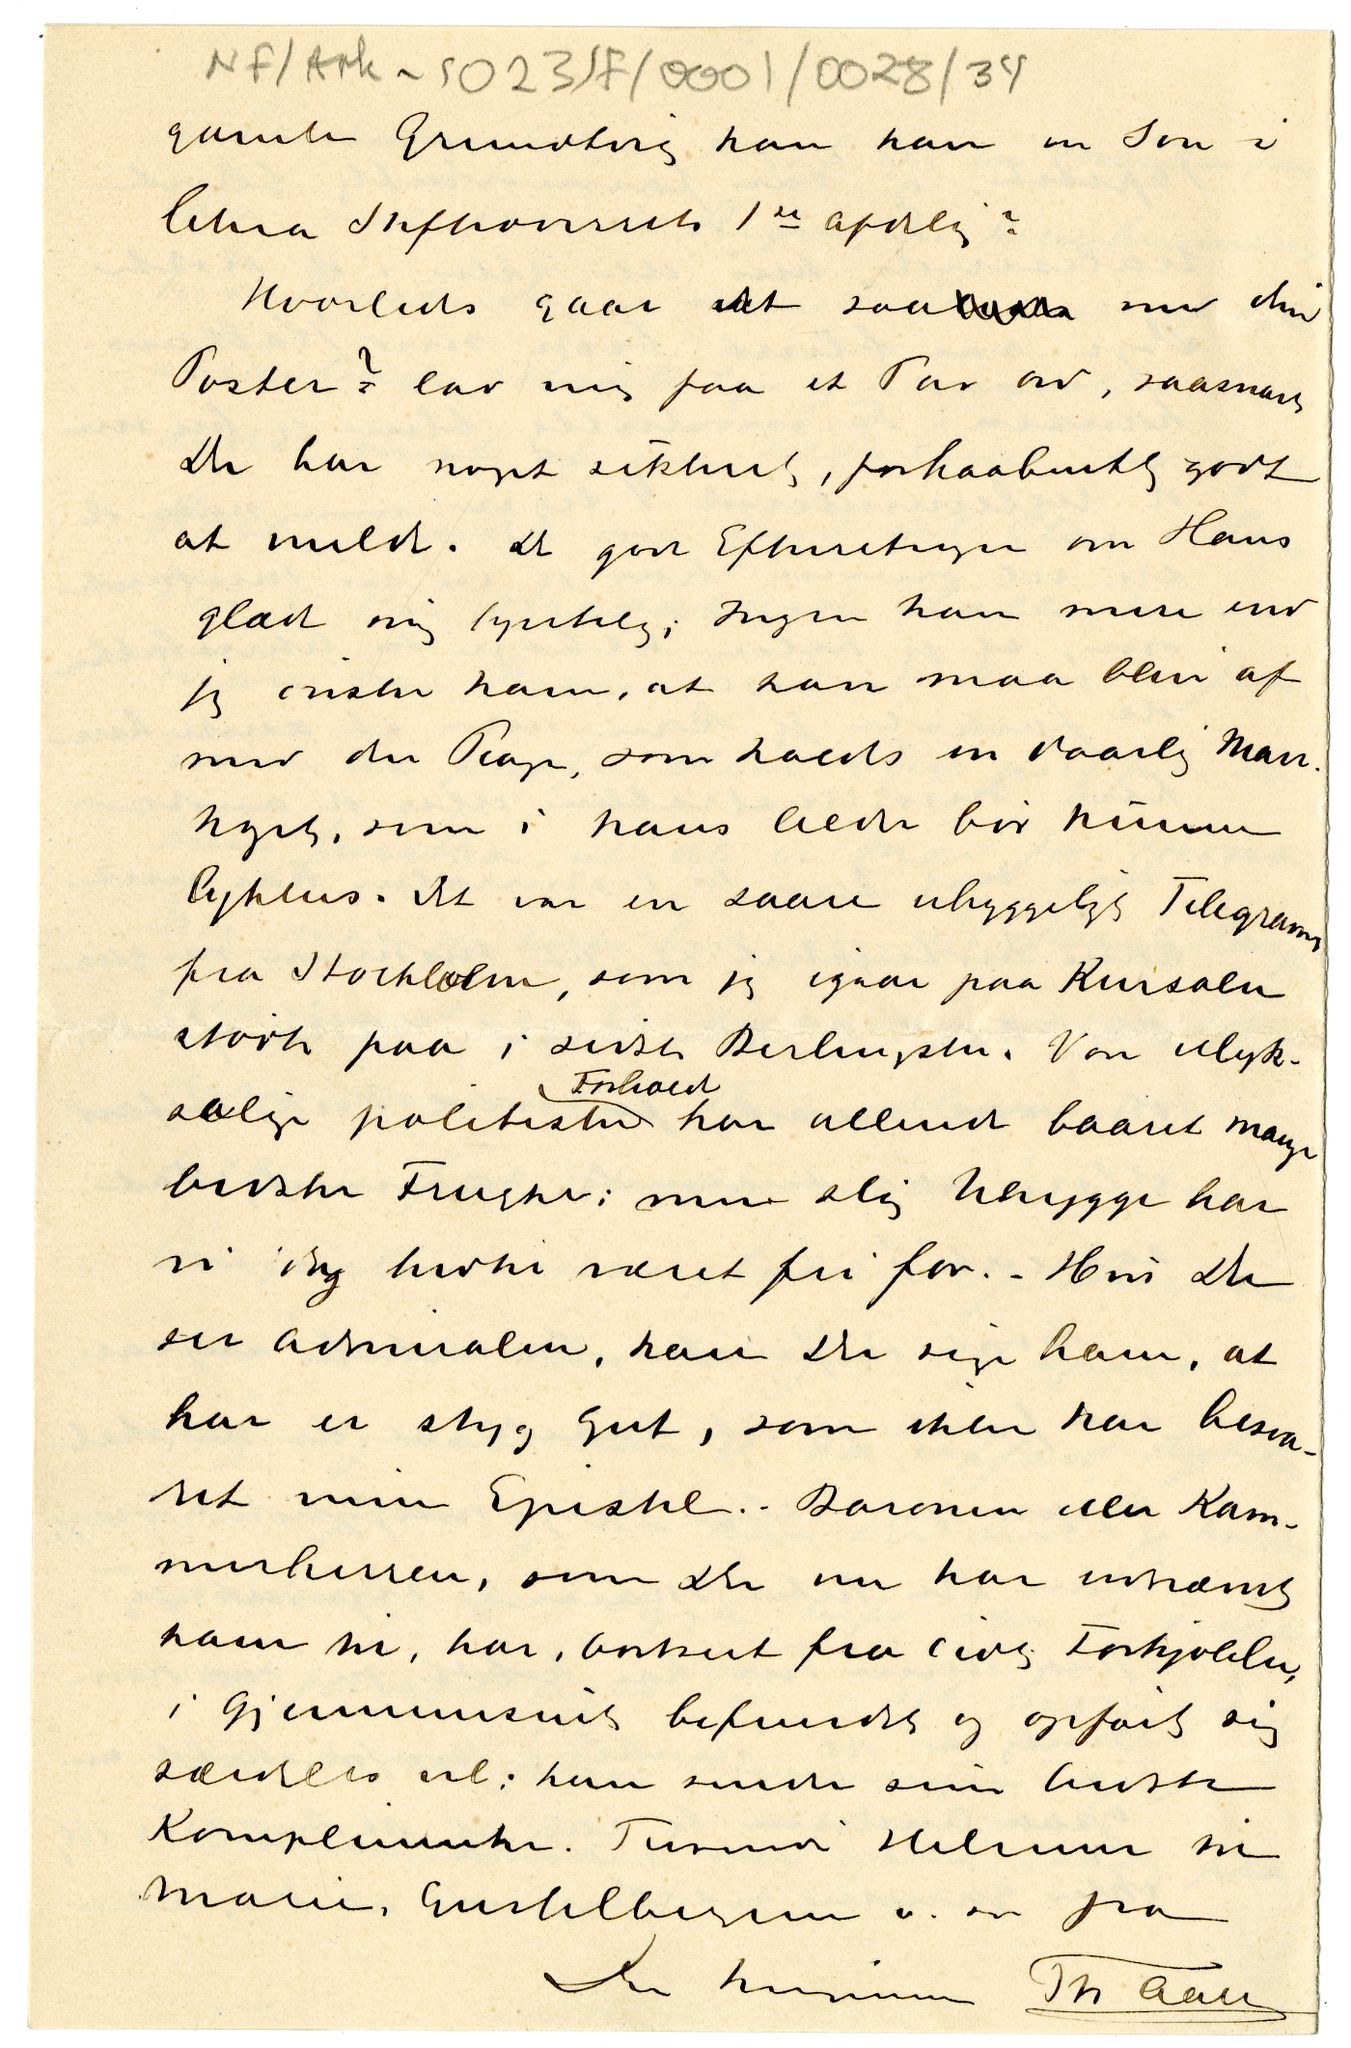 NF/Ark-1023/F/0001/0028/34
gamle Grundtvig kan han en Søn i
1ste
Hvorledes gaar det saa med din
Poster? lad mig faa et Par Ord, saasnart
De har noget sikkert, forhaabentlig godt
at melde. De gode Efterretninger om Hans
glæder mig hjertelig; Ingen kan mere end
jeg ønske ham, at han maa blive af
med den Plage, som kaldes en daarlig Mave
som i hans Alder bør kunne
Det var en saare uhyggeligt Telegram
fra Stockholm, som jeg igaar paa Kursalen
stødte paa i sidste Berlingske. Vore ulyk-
salige politiske Forhold har allerede baaret mange
bedske Frugter; men slig Uhygge har
vi dog hidtil været fri for. - Hvis De
ser Admiralen, kan De sige ham, at
han er styg Gut, som ikke har besva-
ret min Epistel. - Baronen eller Kam-
merherren, som De nu har
ham til, har, bortseet fra lidt Forkjølelse,
i Gjennemsnit befundet og opført sig
særdeles vel; han sender sine bedste
Komplimenter. Tusende Hilsener til
Marie, o. s. v. fra
Deres hengivne Th Aall